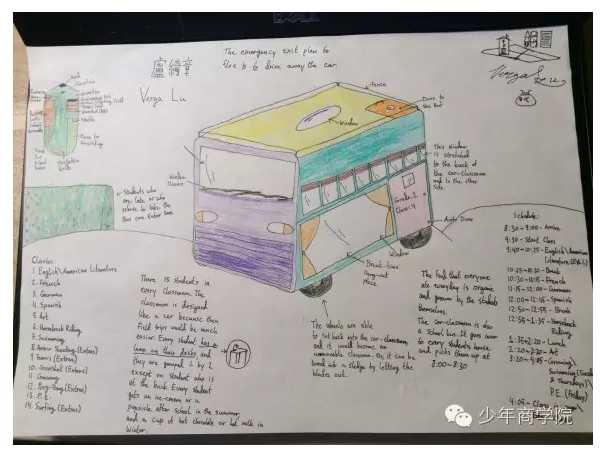 The emergency exit plan to
flee is to drive away the car.
Verga Lu
Window
Door to
the Roof
This Window
is stretched
to the back
of the
car-classroom
and to the other
side.
Grade:2
Class:4
Auto Door
Window
Break-time
Hang-out
Place
Students who
are late or who
refuse to take the
Bus can enter here
Classes
1. English\American Literature
2. French
3. German
4. Spanish
5. Art
6. Horseback
Riding
7. Swimming
8. Arrow Shooting (Extras)
9. Tennis (Extras)
10. Croquet (Extras)
11. Canoeing
12. Ping-Pong (Extras)
13. P.E.
14. Surfing (Extras)
There 15 students in
every classroom. The
classroom is designed
like a car because then
field trips would be much
easier. Every student has a
lamp on their desks, and
they are grouped 2 by 2
except on student who is
at the back. Every student
gets an ice-cream or a
popsicle after school in the summer,
and a cup of hot chocolate or hot milk in
winter.
The wheels are able
to set back into the car-classroom,
and it would become an
unmovable classroom. Or, it can be
turned into a sledge by letting the
blades out.
The food that everyone
ate everyday is organic
and grown by the students
themselves.
The car-classroom is also
a school bus. It goes over
to every students house
and picks them up at
8:00-8:30
Schedule:
8:30-9:00 - Arrive
9:30 - Start Class
9:40-10:25 - English\American
Literature
10:25-10:30 - Break
10:30-11:15 - French
11:15-12:00 - German
12:00-12:45 - Spanish
12:50-12:55 - Break
12:55-1:35 - Horseback
Riding
1:35-2:20 - Lunch
2:20-3:20 - Art
Swimming (Tuesday
& Thursdays)\
P.E. (Friday)
少年商学院